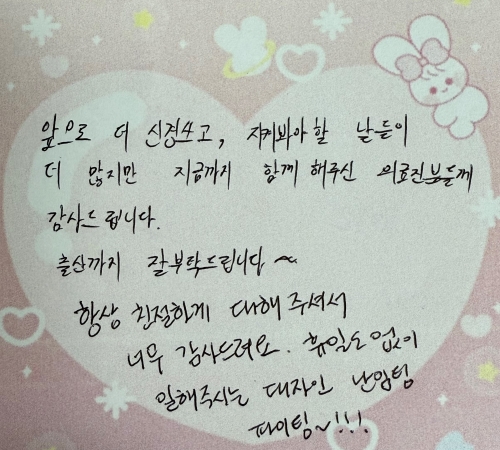 앞으로 더 신경쓰고, 지켜봐야할 날들이
더 많지만 지금까지 함께 해주신 의료진분들께
감사드립니다.
출산까지 잘부탁드립니다~
항상 친절하게 대해주셔서
너무 감사드려요. 휴일도없이
일해주시는 대자인 난임팀
파이팅~!!!